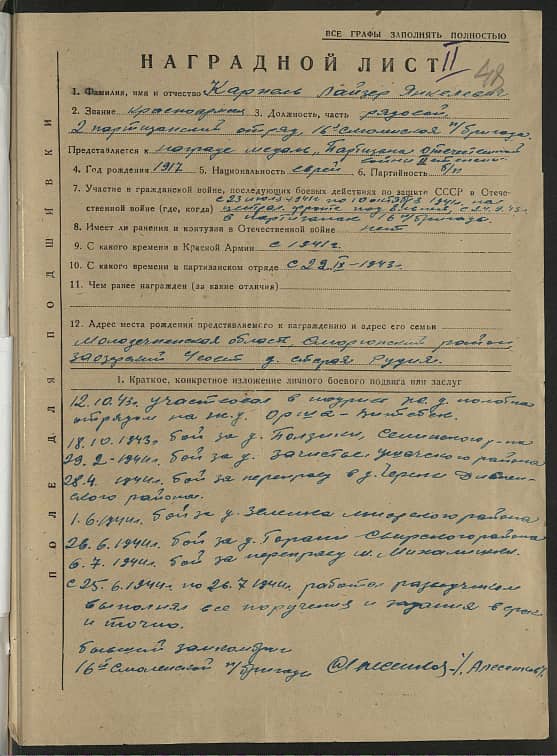 ВСЕ ГРАФЫ ЗАПОЛНЯТЬ ПОЛНОСТЬЮ
НАГРАДНОЙ ЛИСТ II
48
1. Фамилия, имя и отчество Карпель Лайзер Янкелевич
2. Звание красноармеец 3. Должность, часть рядовой,
2 партизанский отряд 16й Смоленская п/бригада
Представляется к награде медаль „Партизана отечественной
войны II степени“
4. Год рождения 1917 5. Национальность еврей 6. Партийность б/п
7. Участие в гражданской войне, последующих боевых действиях по защите СССР в Отече-
с 23 июля 1941г. по 10 октября 1941г. на
ственной войне (где, когда) централ. фронте под
в партизанах 16 п/бригады
8. Имеет ли ранения и контузии в Отечественной войне нет
9. С какого времени в Красной Армии с 1941г.
10. С какого времени в партизанском отряде с 29 IX-1943г.
11. Чем ранее награжден (за какие отличия)
12. Адрес места рождения представляемого к награждению и адрес его семьи
Молодечненская область, Сморгонский район
заозерский с/совет д. старая Рудня.
1. Краткое, конкретное изложение личного боевого подвига или заслуг
12.10.43г. участвовал в подрыве ж.д. полотна
отрядом на ж.д. Орша-Витебск.
18.10.1943г. бой за д. Ползики, Сенненского р-на
29.2-1944г. бой за д. Зачистье ушачского района
28.4. 1944г. бой за переправу в д.
ского района.
1.6.1944г. бой за д. Зеленка миорского района
26.6.1944г. бой за д. Свирского района
6.7.1944г. бой за переправу м. Михалишки.
с 25.6.1944г. по 26.7.1944г. работал разведчиком
выполнял все поручения и задания в срок
и точно.
бывший замкомбриг
16й Смоленской п/бригады
ПОЛЕ ДЛЯ ПОДШИВКИ